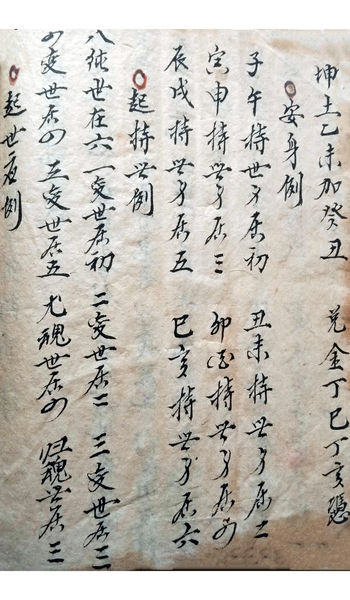 坤土乙未加癸丑 兑金丁巳丁亥
安身例
子午持世身居初 丑未持世身居二
寅申持世身居三 卯酉持世身居四
辰戌持世身居五 巳亥持世身居六
起持世例
八純世在六 一变世居初 二变世居二 三变世居三
四变世居四 五变世居五 尤魂世居四 归魂世居三
起世应例